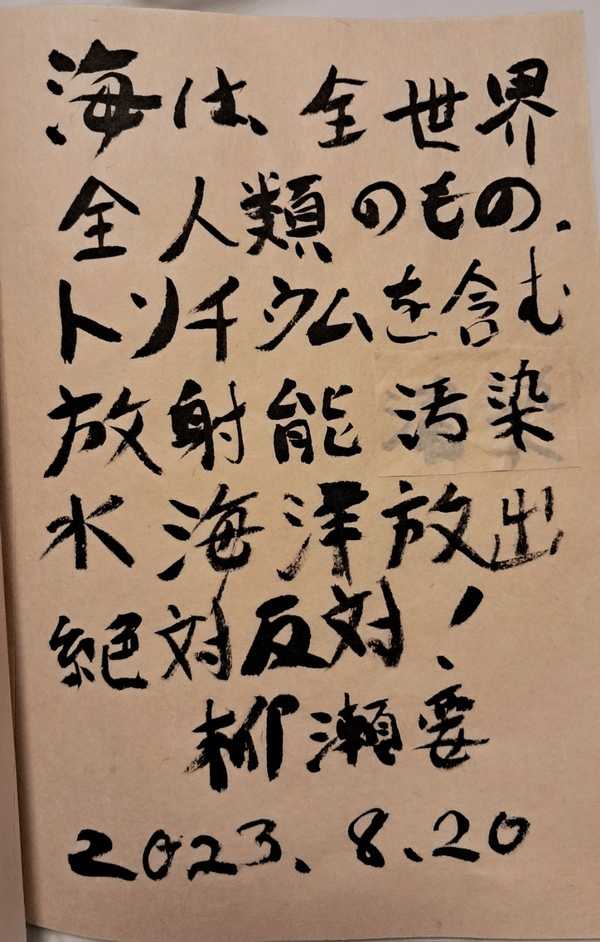 海は、全世界
全人類のもの.
トリチウムを含む
放射能汚染
水海洋放出
絶対反対!
柳瀬要
2023.8.20